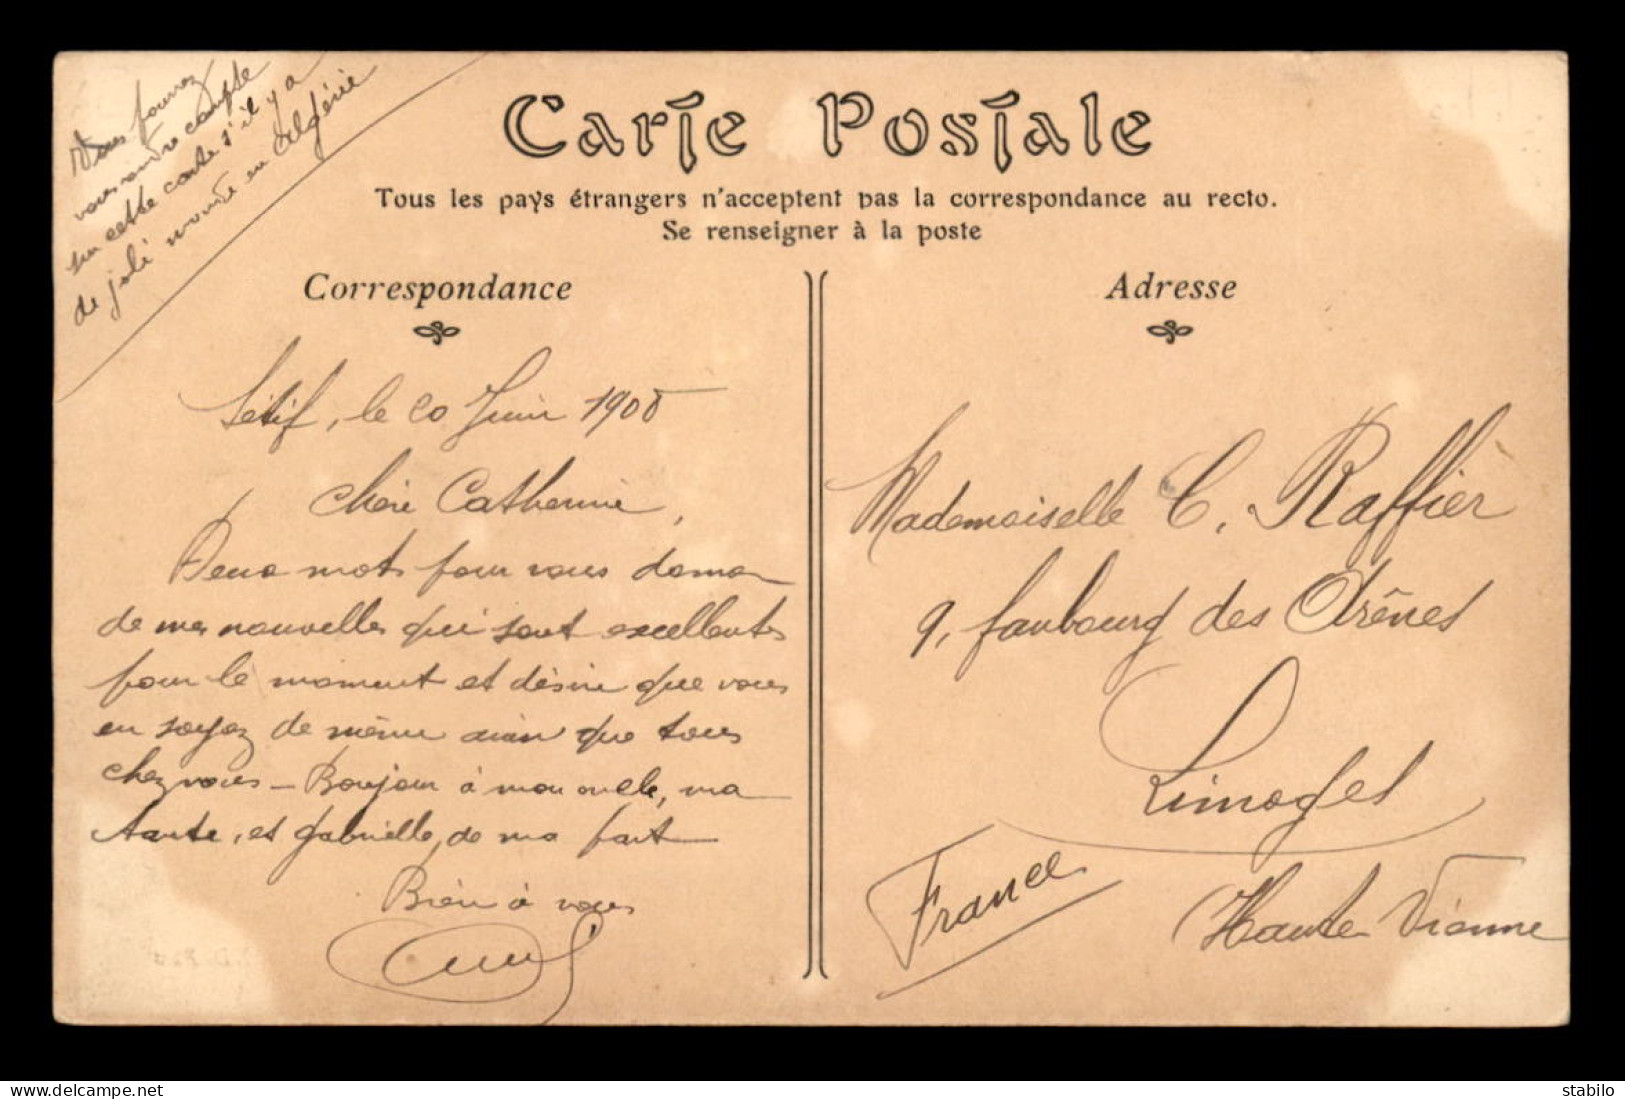 Vous pouvez
vous rendre compte
sur cette carte s'il y a
de joli monde en Algérie
Carte Postale
Tous les pays étrangers n'acceptent pas la correspondance au recto.
Se renseigner à la poste
Correspondance
Sétif, le 20 Juin 1908
Chère Catherine,
Deux mots pour vous donner
de mes nouvelles qui sont excellentes
pour le moment et désire que vous
en soyez de même ainsi que tous
chez vous - Bonjour à mon oncle, ma
tante, et Gabrielle, de ma part
Bien à vous
Adresse
Mademoiselle C. Raffier
9, faubourg des Arênes
Limoges
Haute Vienne
France
stabilo
www.delcampe.net